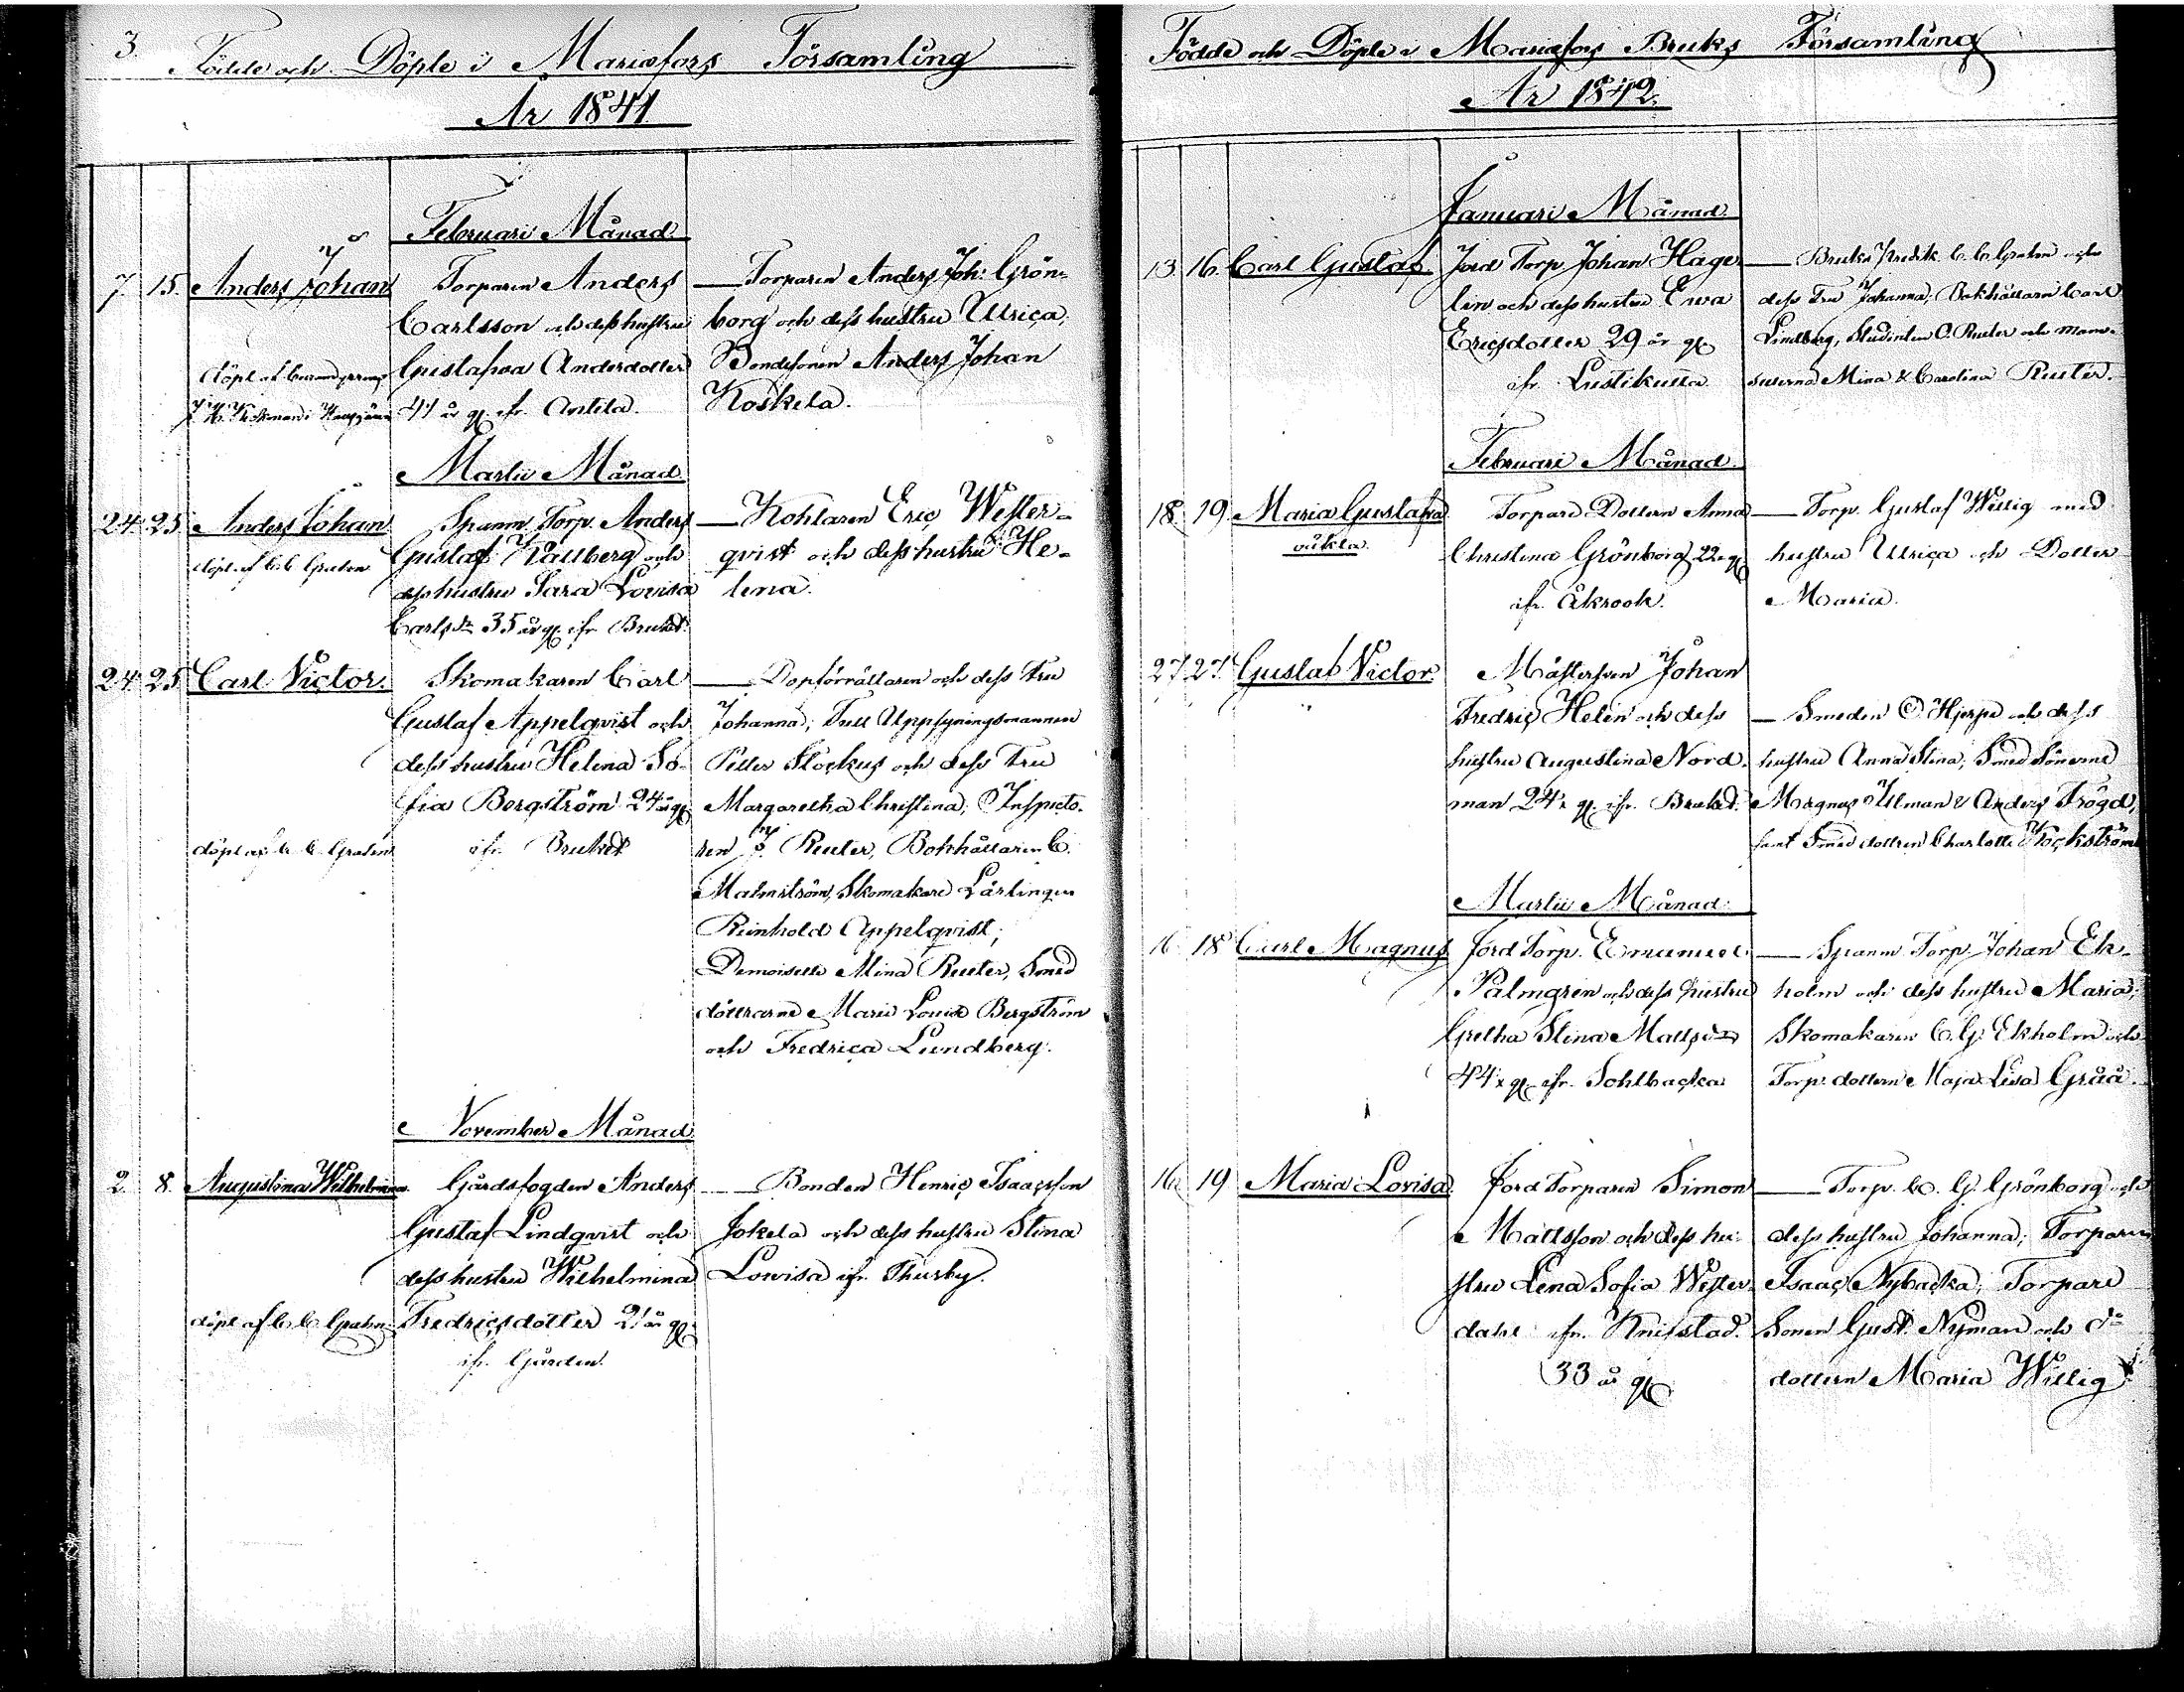 3.
Födde och Döpte i Mariæfors Församling
År 1841.
Februari Månad.
7. 15. Anders Johan
döpt af
Torparen Anders
Carlsson och dess hustru
Gustafva Andersdotter
41 år gl. ifr. Antila.
— Torparen Anders Joh: Grön-
borg och dess hustru Ulrica,
Bondesonen Anders Johan
Koskela.
Martii Månad.
24. 25. Anders Johan
döpt af C. C. Grahn
Spanm. Torp. Anders
Gustaf Källberg och
dess hustru Sara Lovisa
Carlsdr 35 år gl. ifr. Bruket.
— Kohlaren Eric Wester-
qvist och dess hustru He-
lena.
24. 25 Carl Victor.
döpt af C. C. Grahn
Skomakaren Carl
Gustaf Appelqvist och
dess hustru Helena So-
fia Bergström 24 år gl.
ifr. Bruket
— Dopförrättaren och dess Fru
Johanna; Tull Uppsyningsmannen
Petter Stockus och dess Fru
Margaretha Christina; Inspecto-
ren J. Reuter, Bokhållaren C.
Malmström, Skomakare Lärlingen
Reinhold Appelqvist;
Demoiselle Mina Reuter, Smed
döttrarne Maria Lovisa Bergström
och Fredrica Lundberg.
November Månad
2. 8. Augustina Wilhelmina.
döpt af C. C. Grahn.
Gårdsfogden Anders
Gustaf Lindqvist och
dess hustru Wilhelmina
Fredricsdotter 21 år gl.
ifr. Gården.
— Bonden Henric Isaacsson
Jokela och dess hustru Stina
Lovisa ifr. Thusby.
Födde och Döpte i Mariæfors Bruks Församling
År 1842.
Januari Månad.
13. 16. Carl Gustaf
Jord Torp. Johan Hage
lin och dess hustru Ewa
Ericsdotter 29 år gl.
ifr. Lustikulla.
— Bruks Predik. C. C. Grahn och
dess Fru Johanna; Bokhållarn Carl
Lindberg, Studenten O. Reuter och Mam-
sellerna Mina & Carolina Reuter.
Februari Månad.
18. 19. Maria Gustafva
oäkta.
Torpare Dottern Anna
Christina Grönborg 22 år gl.
ifr. Åkrook.
— Torp. Gustaf Willig med
hustru Ulrica och Dotter
Maria.
27. 27. Gustaf Victor.
Mästersven Johan
Fredric Helen och dess
hustru Augustina Nord-
man 24 år gl. ifr. Bruket.
— Smeden C. Hjerpe och dess
hustru Anna Stina; Smed Sönerne
Magnus Ulman & Anders Trögd,
samt Smed dottren Charlotta Kockström
Martii Månad.
16. 18 Carl Magnus
Jord Torp. Emanuel
Palmgren och dess hustru
Gretha Stina Mattsdr
44 år gl. ifr. Sohlbacka
— Spanm Torp. Johan Ek-
holm och dess hustru Maria;
Skomakaren C. G. Ekholm och
Torp. dottern Maja Lisa Gråå.
16. 19 Maria Lovisa.
Jord Torparen Simon
Mattsson och dess hu-
stru Lena Sofia Wester-
dahl ifr. Knifstad.
33 år gl.
— Torp. C. G. Grönborg och
dess hustru Johanna; Torparen
Isaac Nybacka; Torpare
Sonen Gust. Nyman och do
dottern Maria Willig.